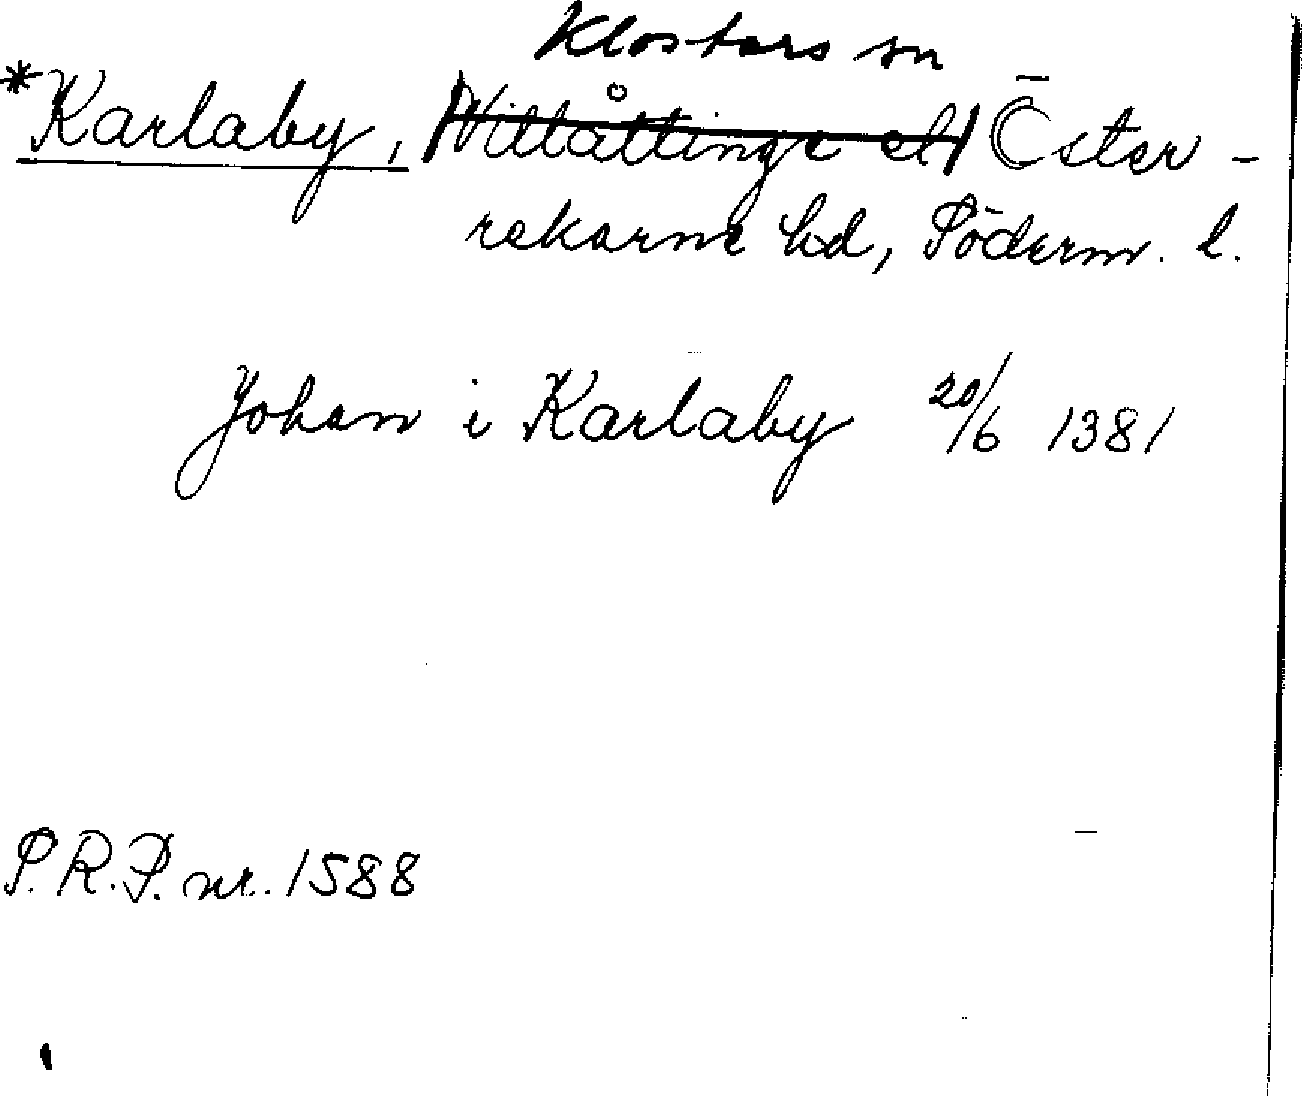 Klosters sn
*Karlaby, Villåttinge el Öster-
rekarne hd, Söderm. l.
Johan i Karlaby 20/6 1381
S.R.P. nr. 1588